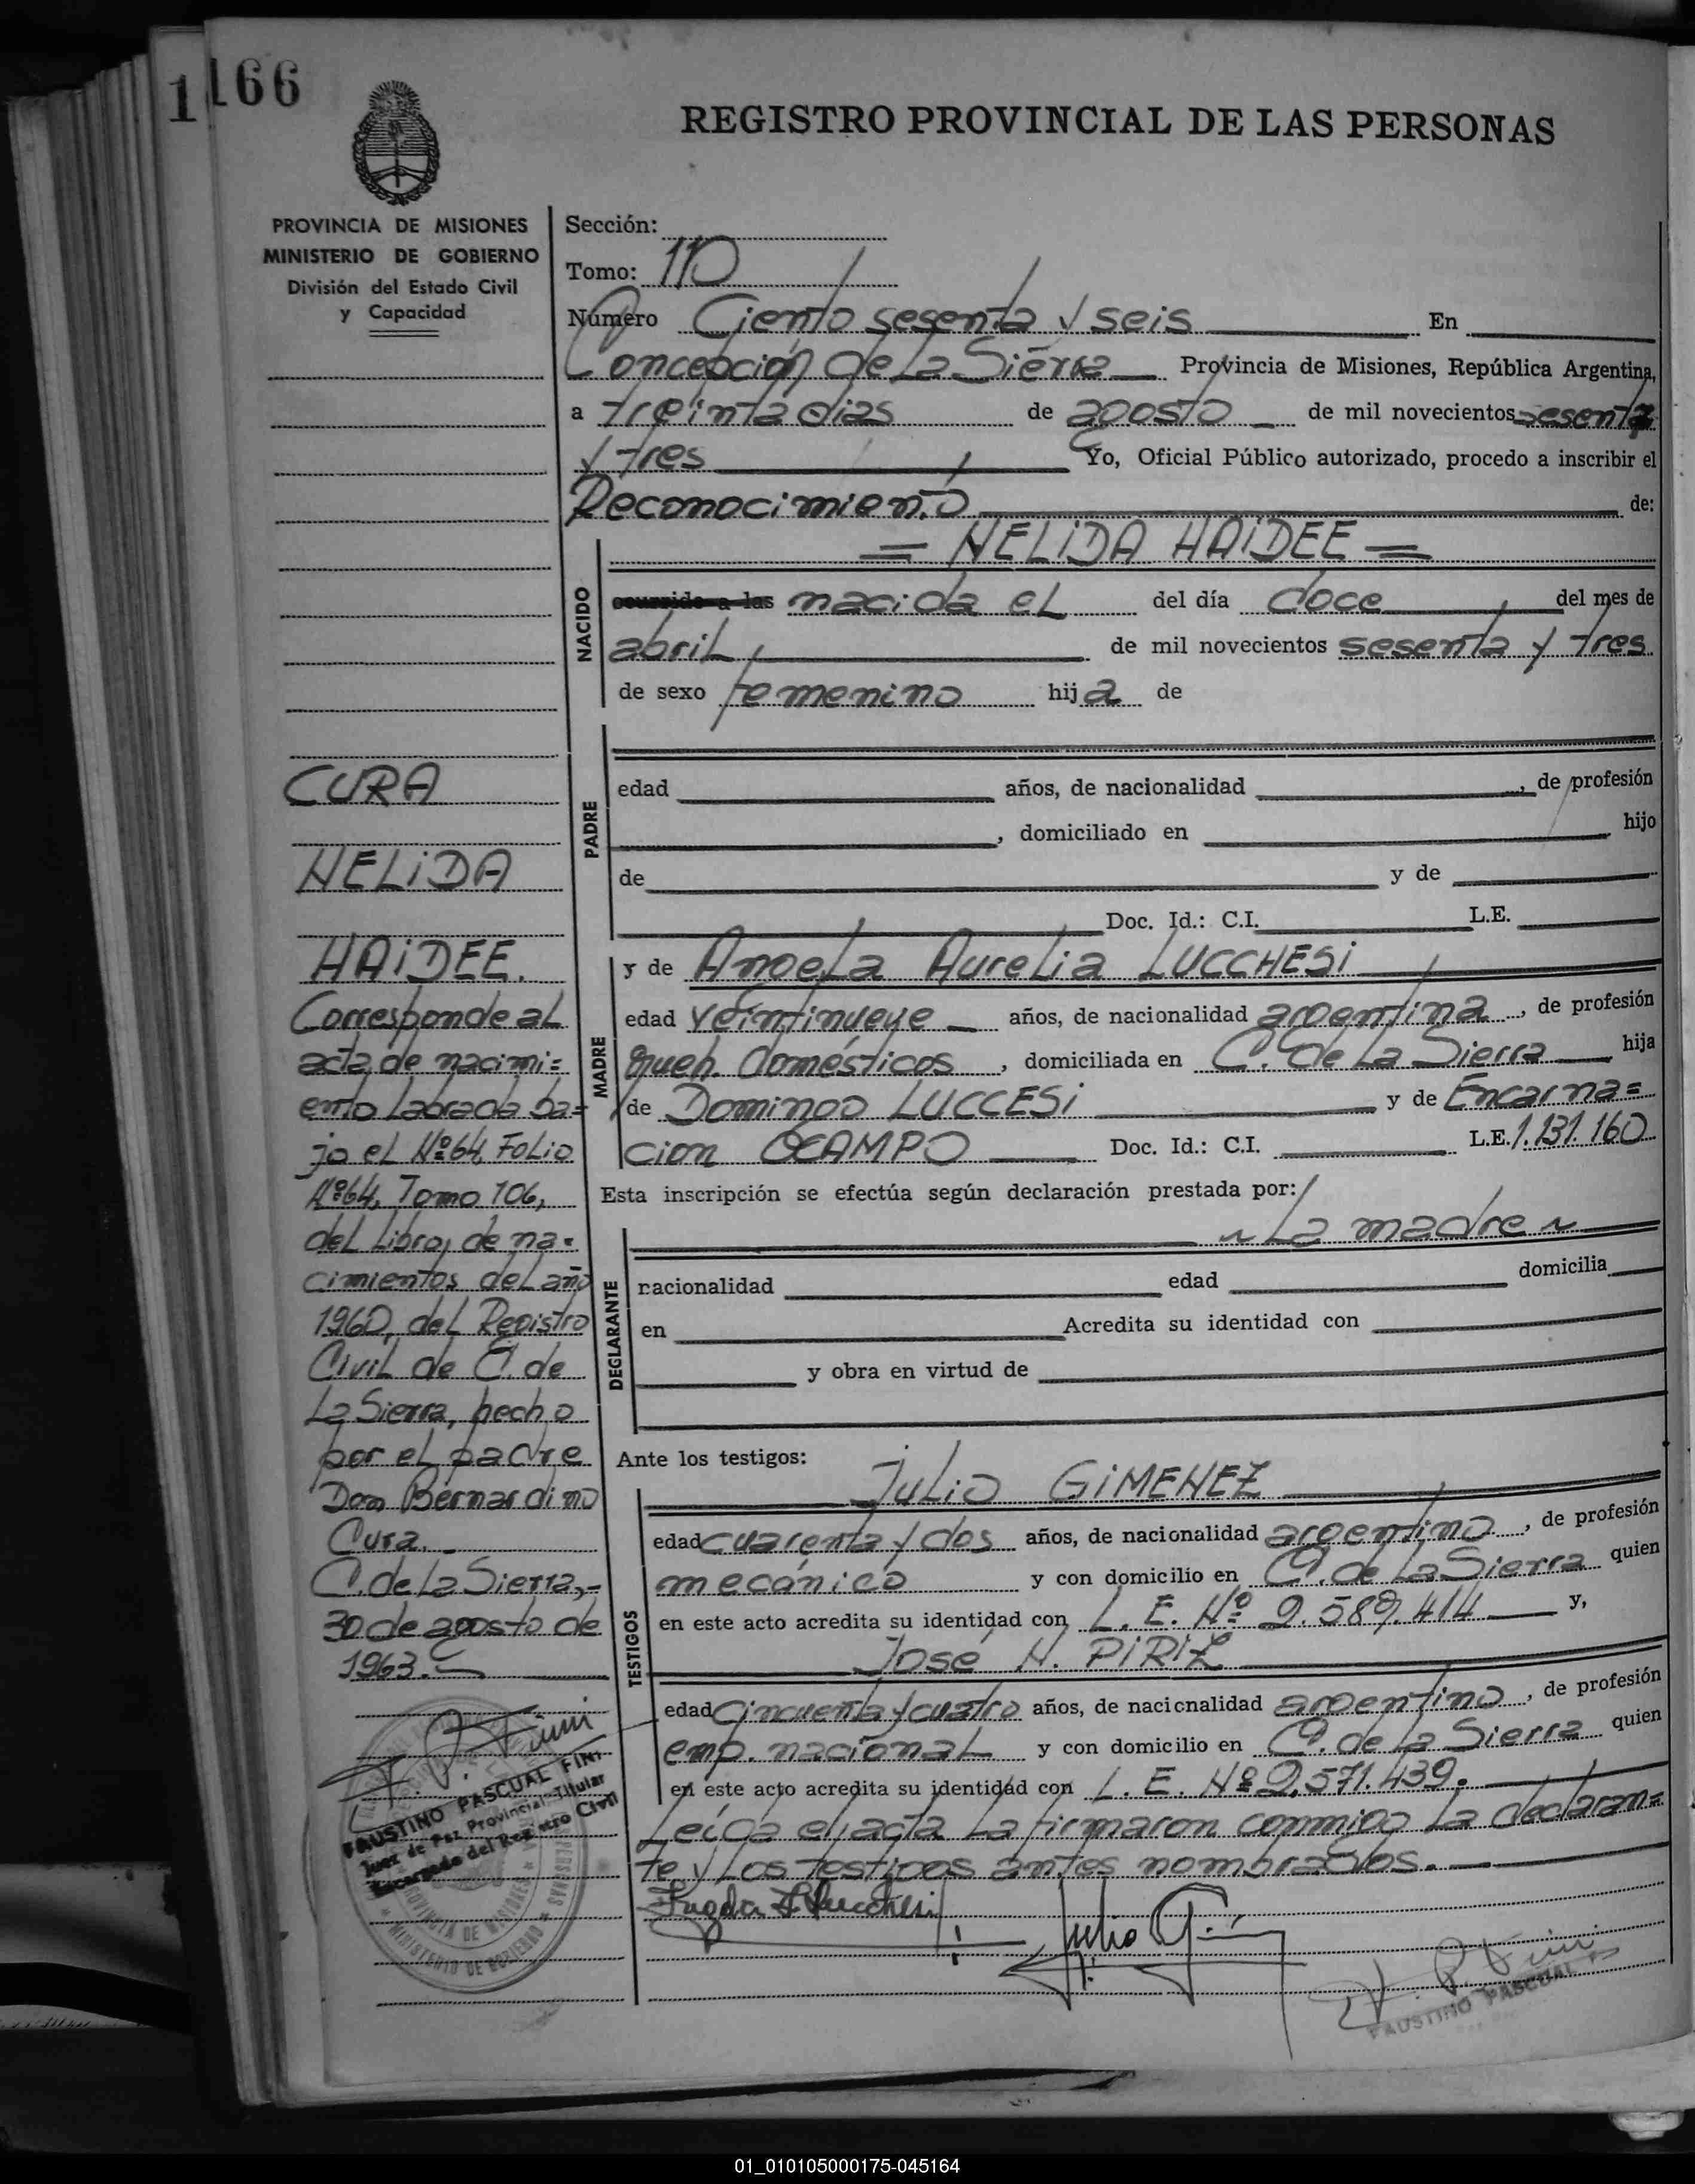 1166
REGISTRO PROVINCIAL DE LAS PERSONAS
PROVINCIA DE MISIONES
MINISTERIO DE GOBIERNO
División del Estado Civil
y Capacidad
CURA
NELIDA
HAIDEE.
Corresponde al
acta de nacimi=
ento labrada ba=
jo el Nº 64, Folio
Nº 64, Tomo 106,
del libro, de na=
cimientos del año
1960, del Registro
Civil de C. de
La Sierra, hecho
por el padre
Don Bernardino
Cura.
C. de La Sierra,-
30 de agosto de
1963.
FAUSTINO PASCUAL FINI
Juez de Paz Provincial-Titular
Encargado del Registro Civil
Sección:
Tomo: 110
Número Ciento sesenta y seis En
Concepción de La Sierra Provincia de Misiones, República Argentina,
a treinta dias de agosto de mil novecientos sesenta
y tres Yo, Oficial Público autorizado, procedo a inscribir el
Reconocimiento de:
= NELIDA HAIDEE =
NACIDO
ocurrido a las nacida el del día doce del mes de
abril, de mil novecientos sesenta y tres
de sexo femenino hija de
PADRE
edad años, de nacionalidad , de profesión
, domiciliado en hijo
de y de
Doc. Id.: C.I. L.E.
MADRE
y de Angela Aurelia LUCCHESI
edad veintinueve años, de nacionalidad argentina, de profesión
queh. domésticos, domiciliada en C. de La Sierra hija
de Domingo LUCCESI y de Encarna=
cion OCAMPO Doc. Id.: C.I. L.E. 1.131.160
Esta inscripción se efectúa según declaración prestada por:
~ La madre ~
DECLARANTE
nacionalidad edad domicilia
en Acredita su identidad con
y obra en virtud de
Ante los testigos:
TESTIGOS
Julio GIMENEZ
edad cuarenta y dos años, de nacionalidad argentino, de profesión
mecánico y con domicilio en C. de La Sierra quien
en este acto acredita su identidad con L. E. Nº 2.589.414 y,
José N. PIRIZ
edad cincuenta y cuatro años, de nacionalidad argentino, de profesión
emp. nacional y con domicilio en C. de La Sierra quien
en este acto acredita su identidad con L. E. Nº 2,571.439.
Leída el acta la firmaron conmigo la declaran=
te y los testigos antes nombrados.
FAUSTINO PASCUAL
01_010105000175-045164